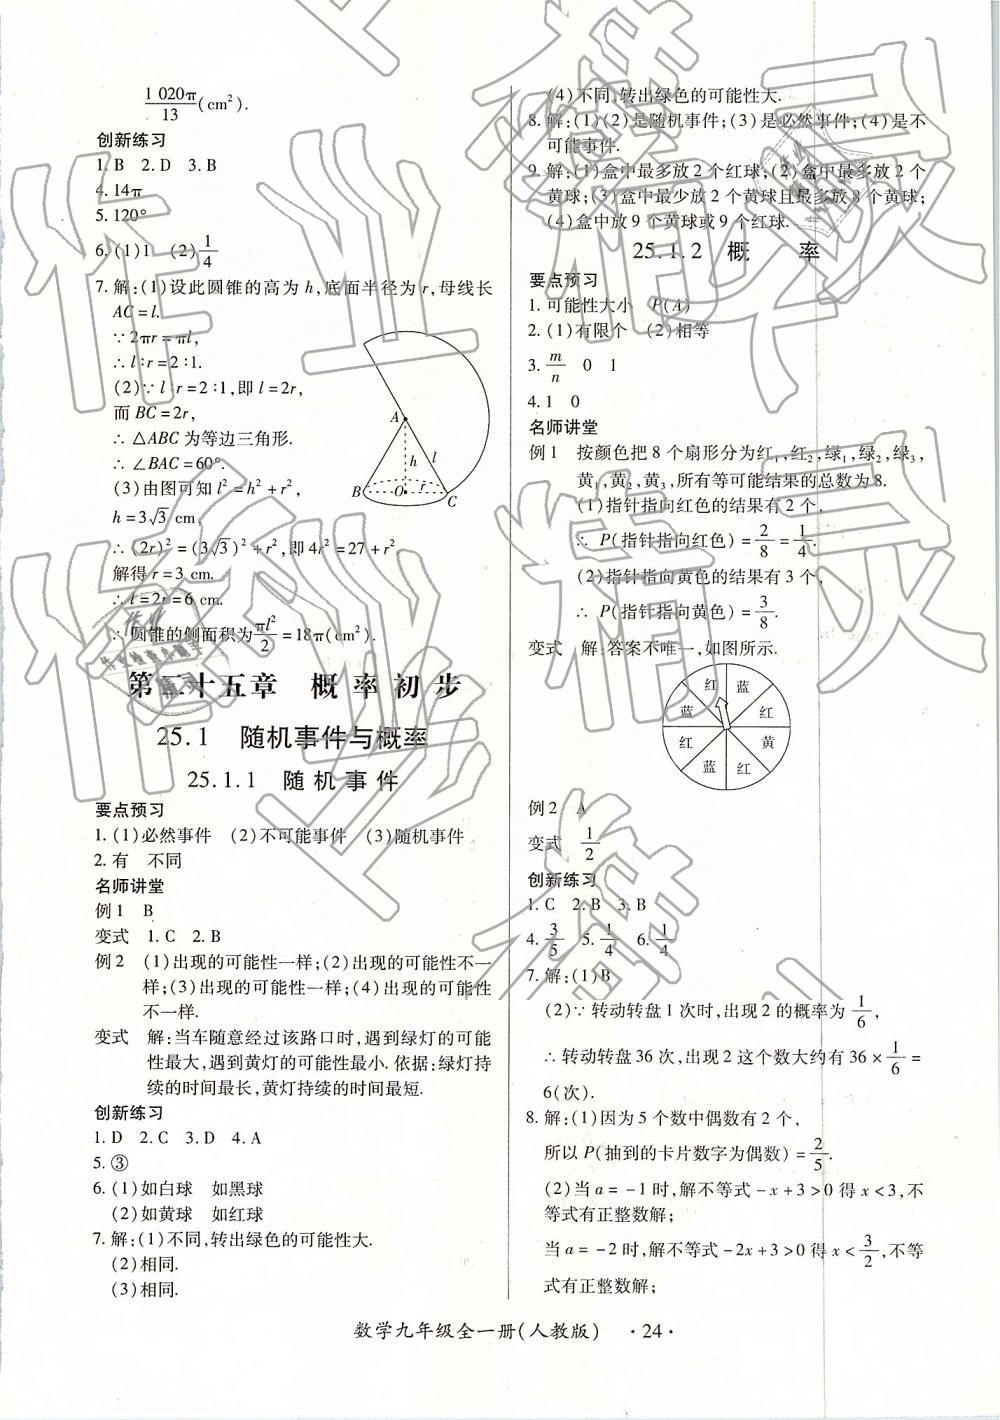 1 020π/13(cm²).
创新练习
1. B 2. D 3. B
4. 14π
5. 120°
6. (1)1 (2)1/4
7. 解:(1)设此圆锥的高为 h,底面半径为 r,母线长
AC=l.
∵2πr=πl,
∴l∶r=2∶1.
(2)∵l∶r=2∶1,即 l=2r,
而 BC=2r,
∴△ABC 为等边三角形.
∴∠BAC=60°.
(3)由图可知 l²=h²+r²,
h=3√3 cm,
∴(2r)²=(3√3)²+r²,即4r²=27+r²,
解得 r=3 cm.
∴l=2r=6 cm.
∴圆锥的侧面积为πl²/2=18π(cm²).
A
l
h
B
O
r
C
第二十五章 概率初步
25.1 随机事件与概率
25.1.1 随机事件
要点预习
1. (1)必然事件 (2)不可能事件 (3)随机事件
2. 有 不同
名师讲堂
例1 B
变式 1. C 2. B
例2 (1)出现的可能性一样;(2)出现的可能性不一
样;(3)出现的可能性一样;(4)出现的可能性
不一样.
变式 解:当车随意经过该路口时,遇到绿灯的可能
性最大,遇到黄灯的可能性最小.依据:绿灯持
续的时间最长,黄灯持续的时间最短.
创新练习
1. D 2. C 3. D 4. A
5. ③
6. (1)如白球 如黑球
(2)如黄球 如红球
7. 解:(1)不同,转出绿色的可能性大.
(2)相同.
(3)相同.
(4)不同,转出绿色的可能性大.
8. 解:(1)(2)是随机事件;(3)是必然事件;(4)是不
可能事件.
9. 解:(1)盒中最多放 2 个红球;(2)盒中最多放 2 个
黄球;(3)盒中最少放 2 个黄球且最多放 8 个黄球;
(4)盒中放 9 个黄球或 9 个红球.
25.1.2 概 率
要点预习
1. 可能性大小 P(A)
2. (1)有限个 (2)相等
3. m/n 0 1
4. 1 0
名师讲堂
例1 按颜色把 8 个扇形分为红₁,红₂,绿₁,绿₂,绿₃,
黄₁,黄₂,黄₃,所有等可能结果的总数为 8.
(1)指针指向红色的结果有 2 个,
∴ P(指针指向红色)=2/8=1/4.
(2)指针指向黄色的结果有 3 个,
∴ P(指针指向黄色)=3/8.
变式 解:答案不唯一,如图所示.
红 蓝
蓝 红
红 黄
蓝 红
例2 A
变式 1/2
创新练习
1. C 2. B 3. B
4. 3/5 5. 1/4 6. 1/4
7. 解:(1)B
(2)∵转动转盘 1 次时,出现 2 的概率为 1/6,
∴转动转盘 36 次,出现 2 这个数大约有 36×1/6=
6(次).
8. 解:(1)因为 5 个数中偶数有 2 个,
所以 P(抽到的卡片数字为偶数)=2/5.
(2)当 a=-1 时,解不等式-x+3>0 得 x<3,不
等式有正整数解;
当 a=-2 时,解不等式-2x+3>0 得 x<3/2,不等
式有正整数解;
数学九年级全一册(人教版) ·24·
作业精灵
作业精灵
精灵